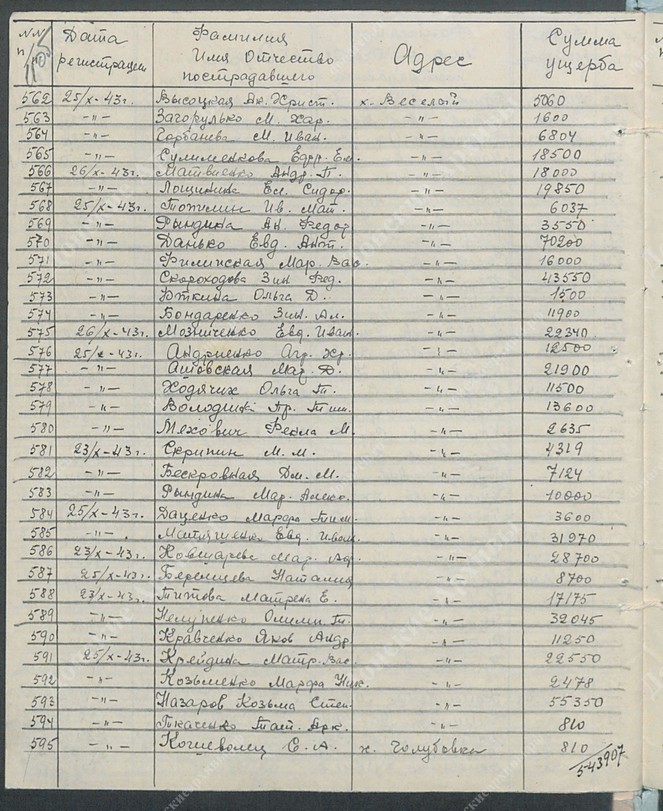 NN п/п Дата регистрации Фамилия Имя Отчество пострадавшего Адрес Сумма ущерба
562 25/X-43г. Высоцкая Ан. Христ. х. Веселый 5060
563 -"- Загорулько М. Хар. -"- 1600
564 -"- Горбанева М. Иван. -"- 6804
565 -"- Сулименкова Ефр. Ем. -"- 18500
566 26/X-43г. Матвиенко Андр. Т. -"- 18000
567 -"- Лощинина Ел. Сидор. -"- 19850
568 25/X-43г. Топилин Ив. Мат. -"- 6037
569 -"- Рындина Ан. Федор -"- 3550
570 -"- Данько Евд. Ант. -"- 70200
571 -"- Филинская Мар. Вас. -"- 16000
572 -"- Скороходова Зин. Фед. -"- 43550
573 -"- Юткина Ольга Д. -"- 1500
574 -"- Бондаренко Зин. Ал. -"- 11900
575 26/X-43г. Мозниченко Евд. Иван. -"- 22340
576 25/X-43г. Андриенко Агр. Хр. -"- 12500
577 -"- Мар. Д. -"- 21900
578 -"- Ходячих Ольга Т. -"- 11500
579 -"- Пр. Тим. -"- 13600
580 -"- Мехович Фекла М. -"- 2635
581 23/X-43г. Скрипин М. М. -"- 4319
582 -"- Бескровная Дм. М. -"- 7124
583 -"- Рындина Мар. Алекс. -"- 10000
584 25/X-43г. Даценко Марфа Тим. -"- 3600
585 -"- Евд. Иван. -"- 31970
586 23/X-43г. Мар. -"- 28700
587 25/X-43г. Наталия -"- 8700
588 23/X-43г. Титова Матрена Е. -"- 17175
589 -"- Олимп. Т. -"- 32045
590 -"- Кравченко Яков Андр -"- 11250
591 25/X-43г. Крейдина Матр. Вас. -"- 22550
592 -"- Козьменко Марфа Ник. -"- 2478
593 -"- Назаров Козьма Степ. -"- 55350
594 -"- Ткаченко Тат. Арк. -"- 810
595 -"- Кошеволец Е. А. х. Голубовка 810
543907